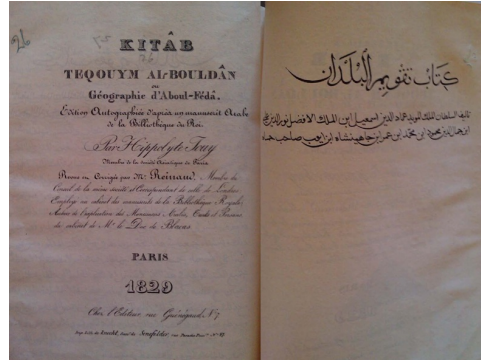 26
KITÂB
TEQOUYM AL-BOULDÂN
ou
Géographie d'Aboul-Fédâ,
Edition Autographiée d'après un manuscrit Arabe
de la Bibliothèque du Roi.
Par Hippolyte Jouy
Membre de la Société Asiatique de Paris.
Revue et Corrigée par Mr. Reinaud, Membre du
Conseil de la même société et Correspondant de celle de Londres
Employé au cabinet des manuscrits de la Bibliothèque Royale,
Auteur de l'explication des Monumens Arabes, Turks et Persans
du cabinet de Mr. le Duc de Blacas
PARIS
1829
Chez l'Editeur rue Guénégaud N. 7
كتاب تقويم البلدان
تاليف السلطان الملك المويد عماد الدين اسمعيل ابن الملك الافضل نور الدين علي
ابن جمال الدين محمود بن محمد بن عمر بن شاهنشاه بن ايوب صاحب حماه